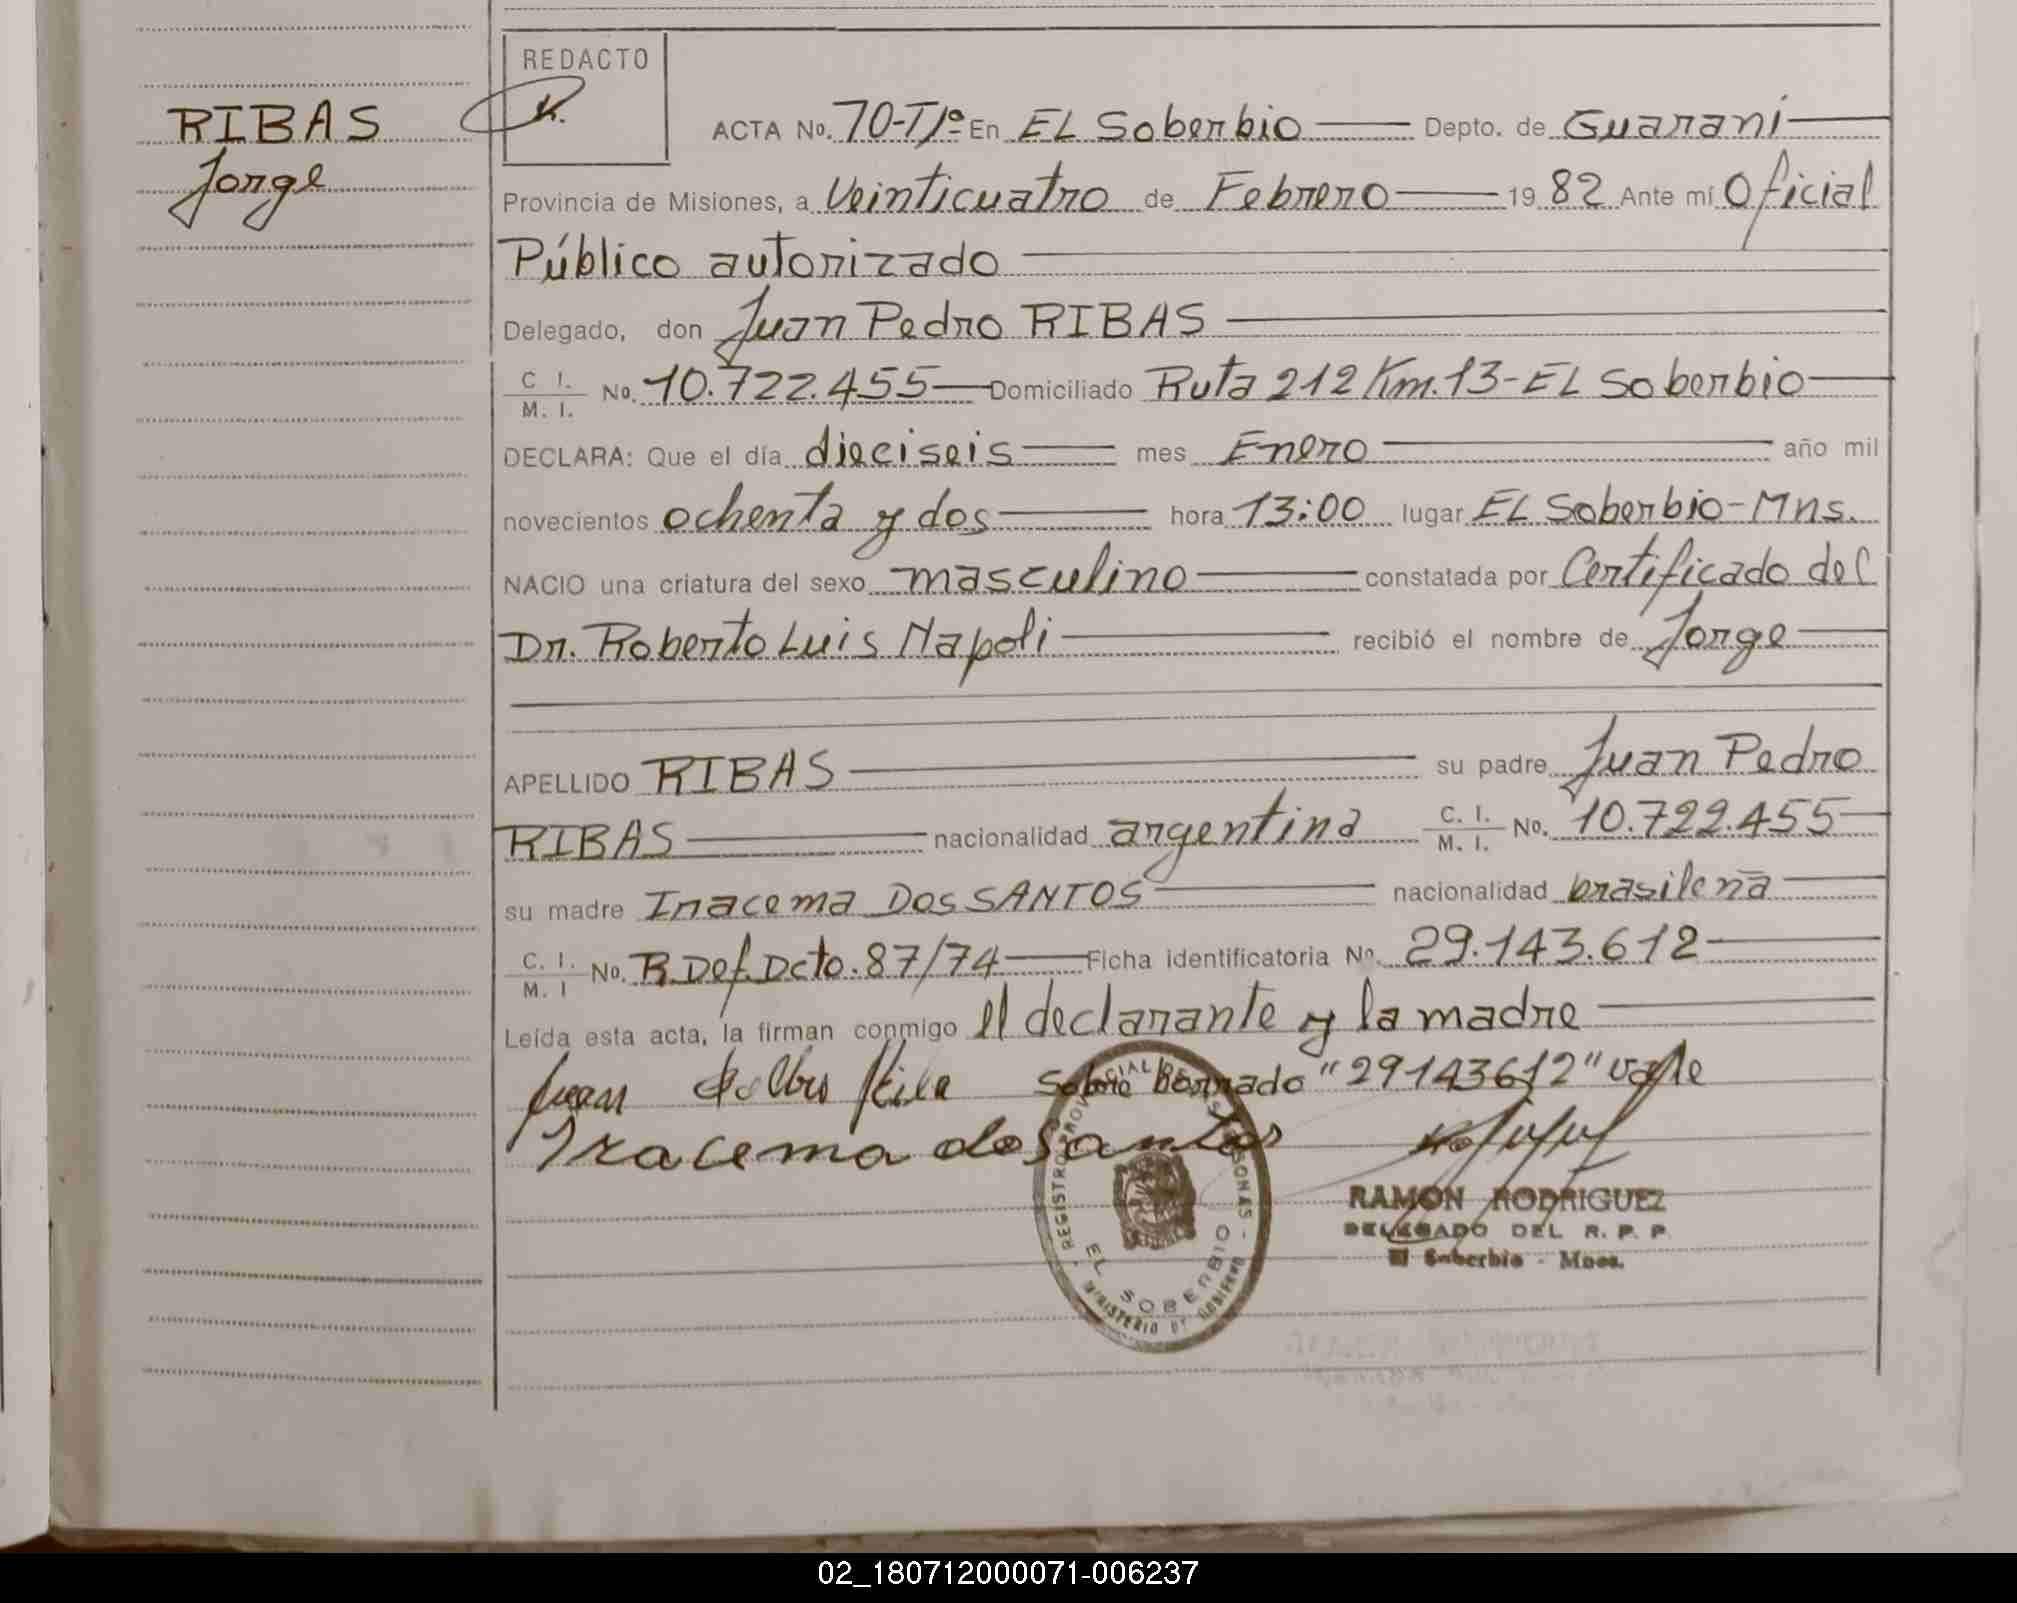 REDACTO
RIBAS
Jorge
ACTA No. 70-Tº1º En EL Soberbio Depto. de Guaraní
Provincia de Misiones, a Veinticuatro de Febrero 1982 Ante mí Oficial
Público autorizado
Delegado, don Juan Pedro RIBAS
C. I. / M. I. No. 10.722.455 Domiciliado Ruta 212 Km.13-EL Soberbio
DECLARA: Que el día dieciseis mes Enero año mil
novecientos ochenta y dos hora 13:00 lugar EL Soberbio-Mns.
NACIO una criatura del sexo masculino constatada por Certificado del
Dr. Roberto Luis Napoli recibió el nombre de Jorge
APELLIDO RIBAS su padre Juan Pedro
RIBAS nacionalidad argentina C. I. / M. I. No. 10.722.455
su madre Iracema DOS SANTOS nacionalidad brasileña
C. I. / M. I No. R.Def.Dcto.87/74 Ficha identificatoria No. 29.143.612
Leída esta acta, la firman conmigo el declarante y la madre
Juan
sobre borrado "29143612" vale
Iracema do Santos
REGISTRO PROVINCIAL DE LAS PERSONAS
EL SOBERBIO
MINISTERIO DE GOBIERNO
RAMON RODRIGUEZ
DELEGADO DEL R. P. P.
El Soberbio - Mnes.
02_180712000071-006237